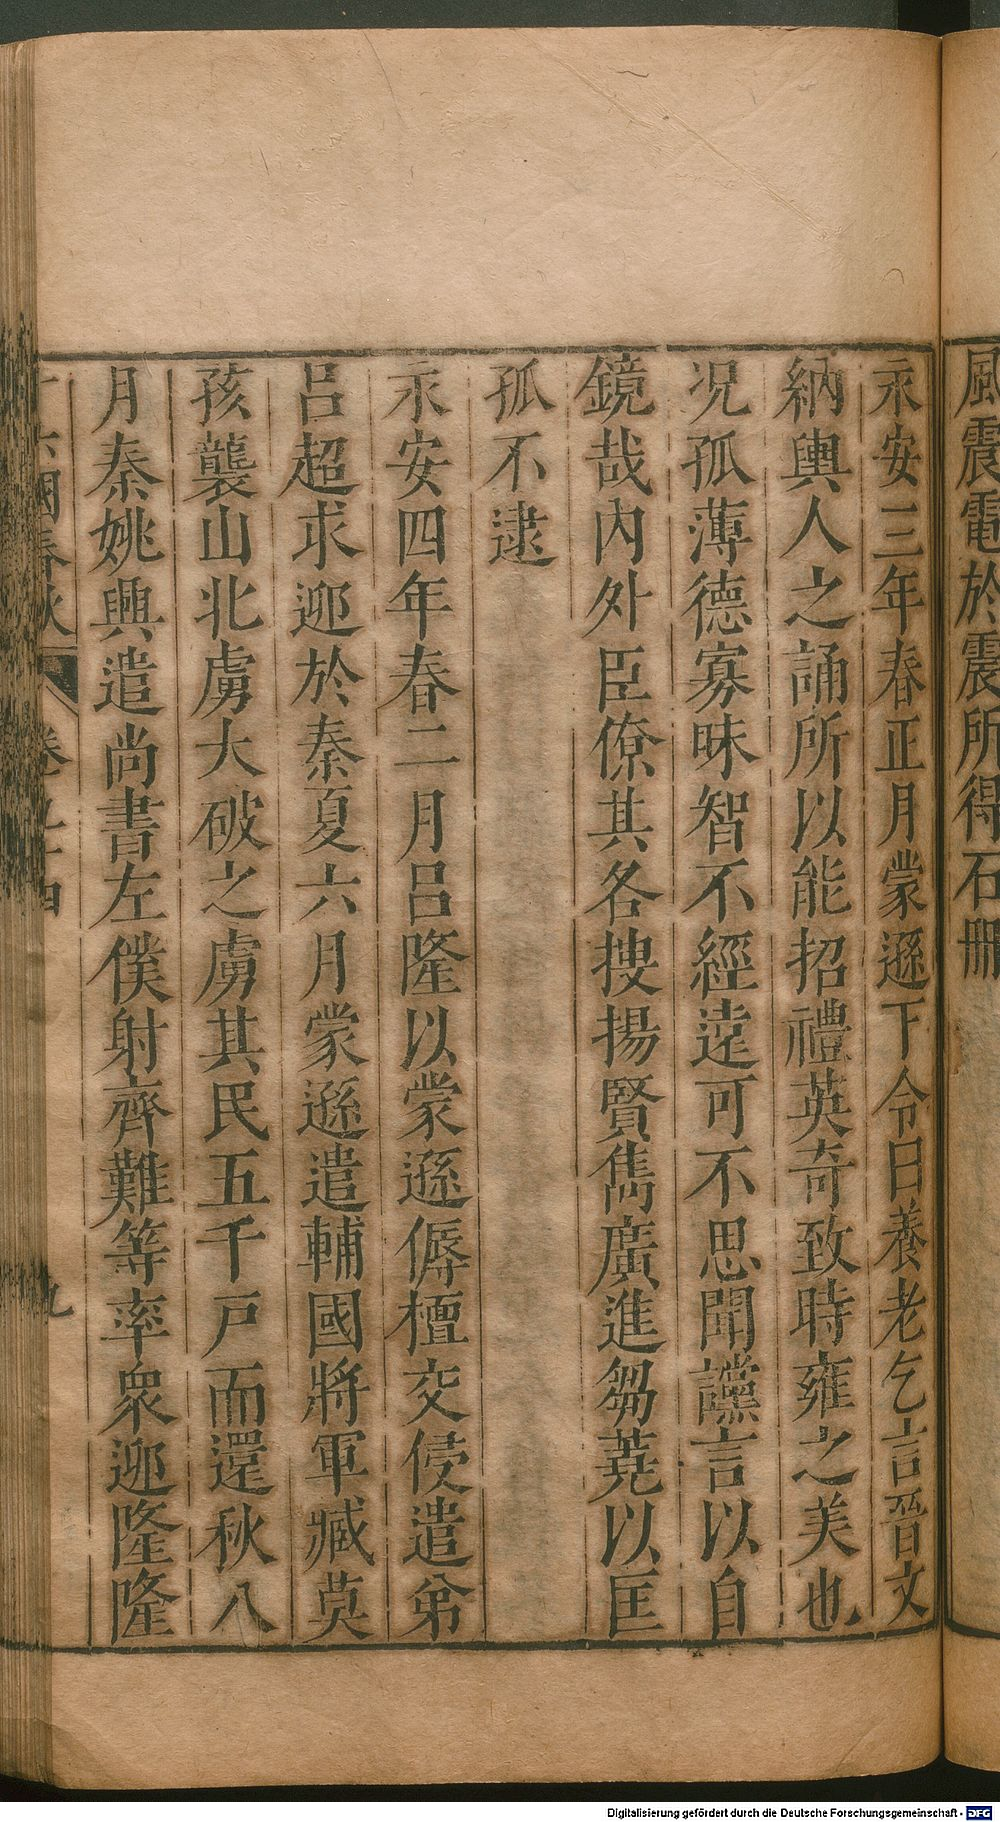 風震電於震所得石冊
永安三年春正月蒙遜下令曰養老乞言晉文
納輿人之誦所以能招禮英奇致時雍之美也
况孤薄德寡昧智不經遠可不思聞讜言以自
鏡哉內外臣僚其各搜揚賢雋廣進芻蕘以匡
孤不逮
永安四年春二月呂隆以蒙遜傉檀交侵遣弟
呂超求迎於秦夏六月蒙遜遣輔國將軍臧莫
孩襲山北虜大破之虜其民五千戸而還秋八
月秦姚興遣尚書左僕射齊難等率衆迎隆隆
十六國春秋 卷九十四 九
Digitalisierung gefördert durch die Deutsche Forschungsgemeinschaft - DFG